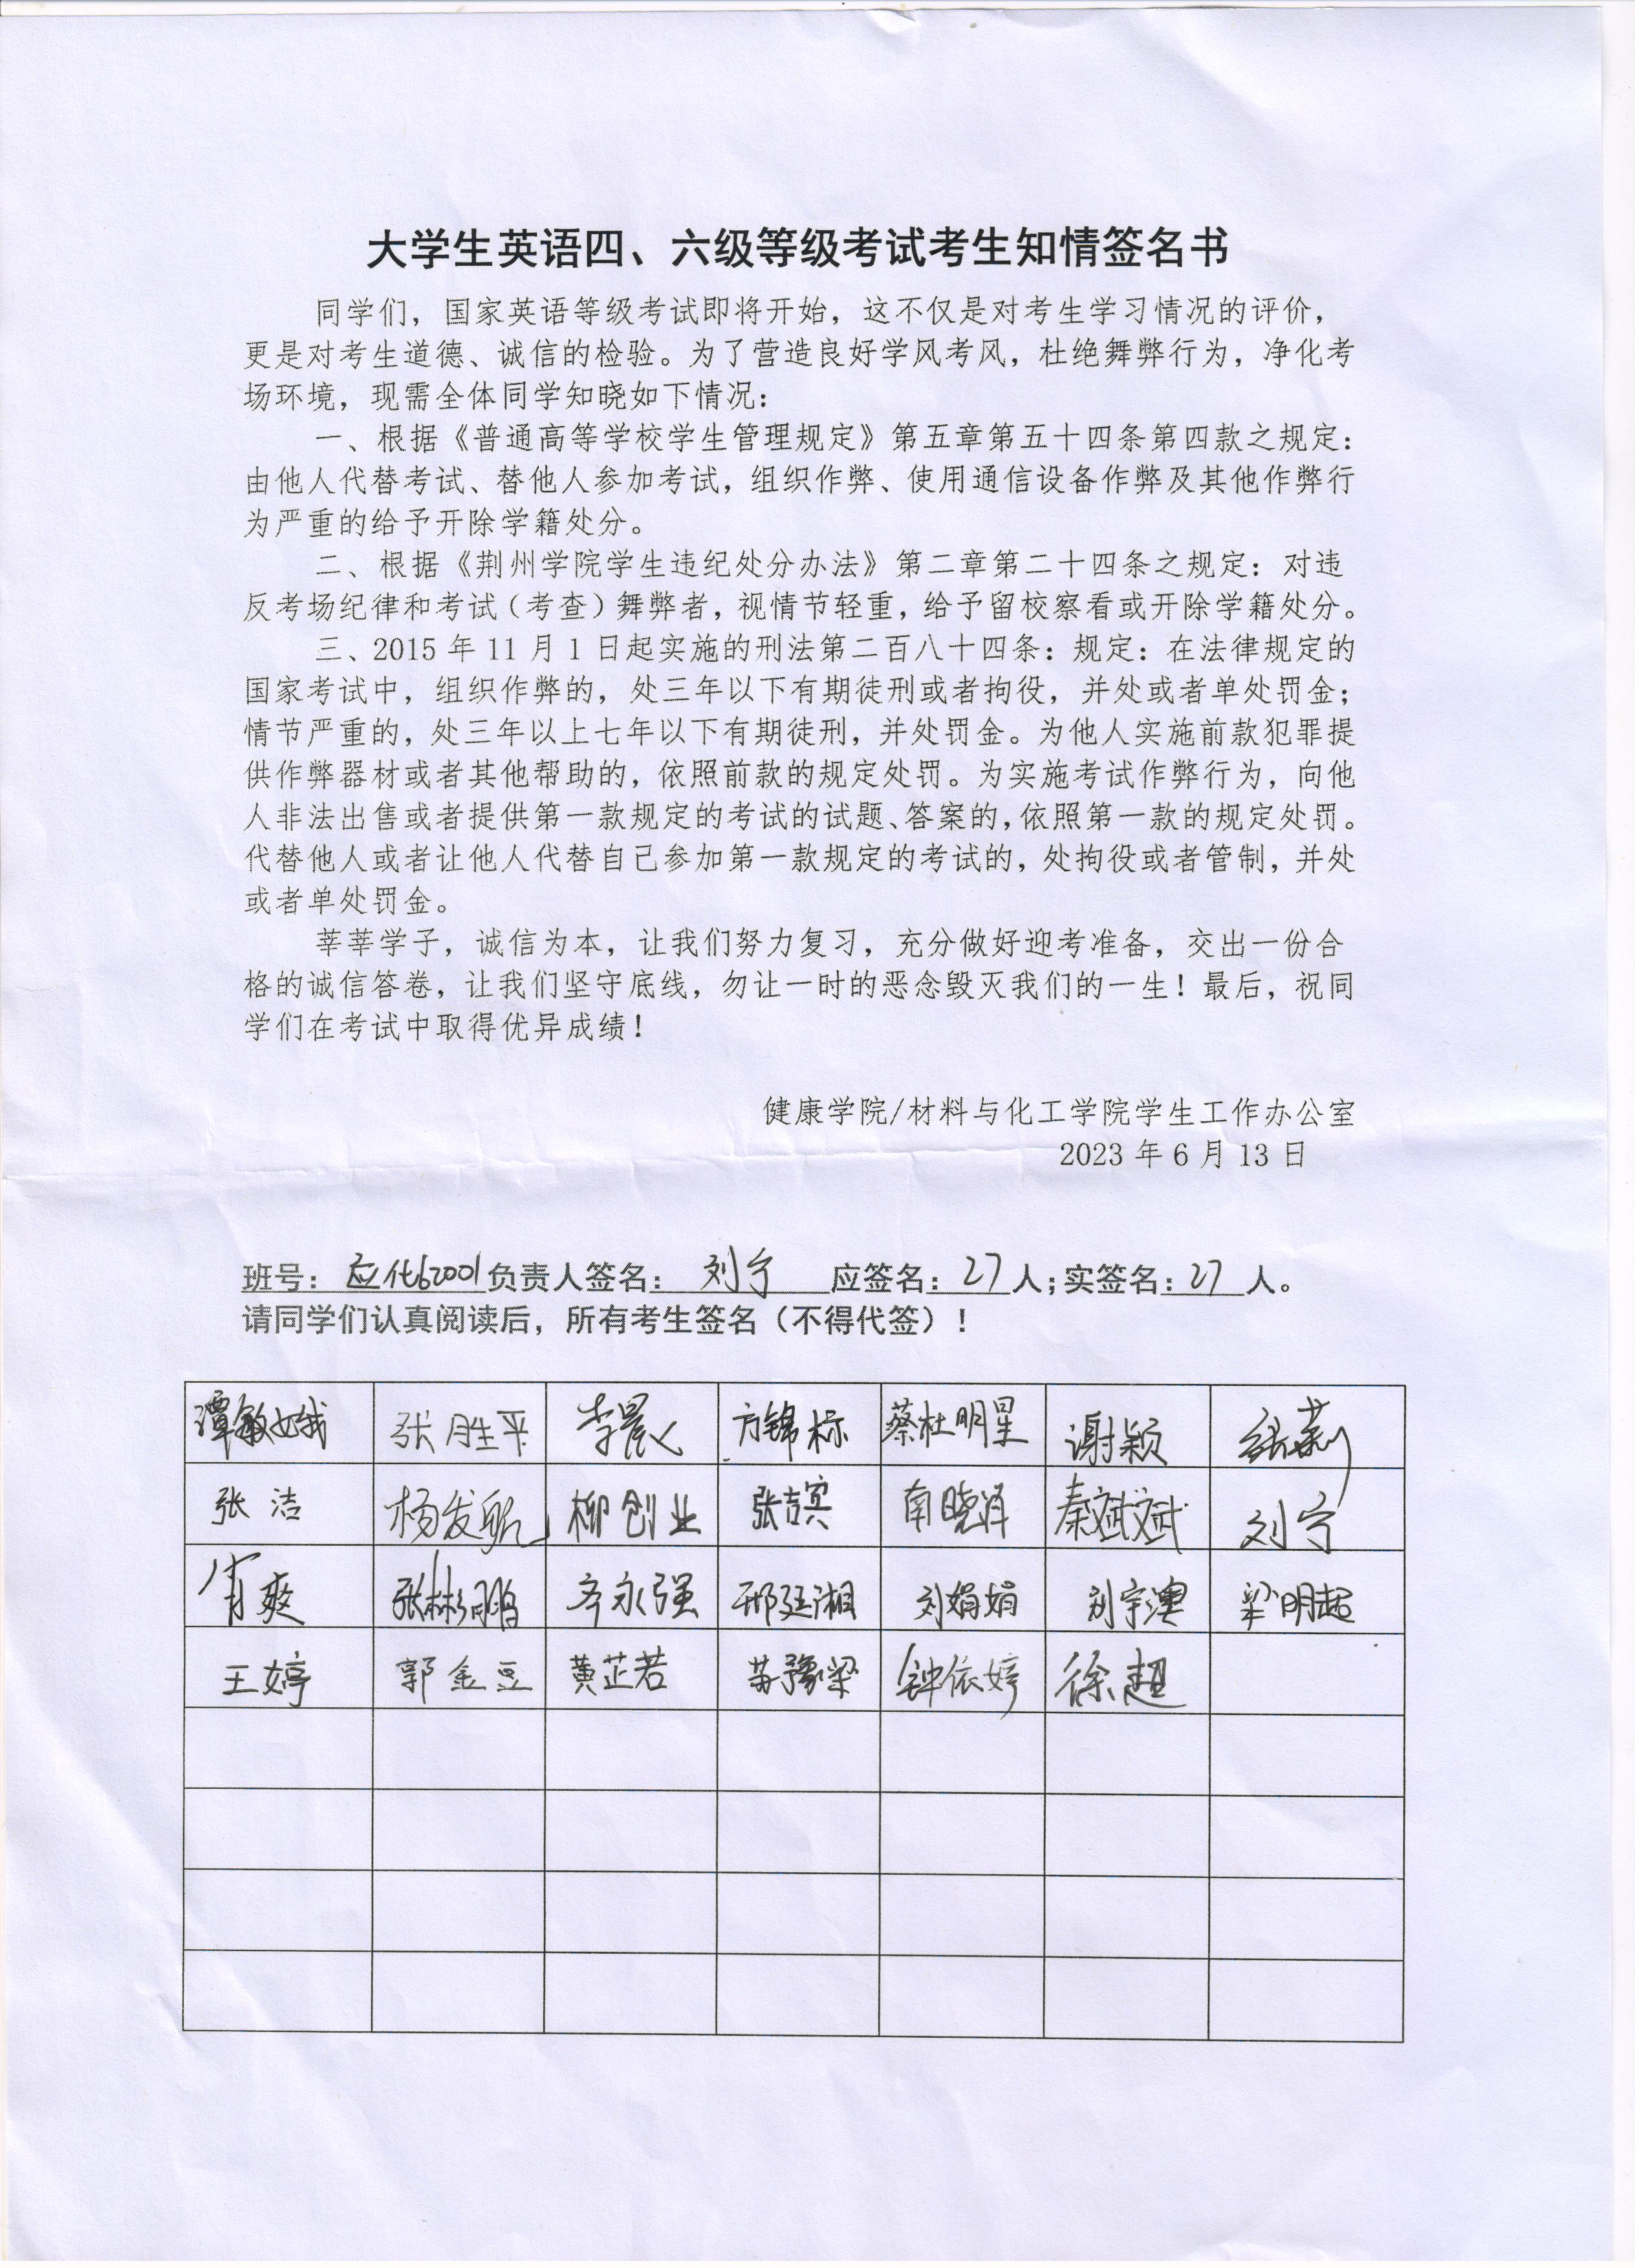 大学生英语四、六级等级考试考生知情签名书
同学们，国家英语等级考试即将开始，这不仅是对考生学习情况的评价，
更是对考生道德、诚信的检验。为了营造良好学风考风，杜绝舞弊行为，净化考
场环境，现需全体同学知晓如下情况：
一、根据《普通高等学校学生管理规定》第五章第五十四条第四款之规定：
由他人代替考试、替他人参加考试，组织作弊、使用通信设备作弊及其他作弊行
为严重的给予开除学籍处分。
二、根据《荆州学院学生违纪处分办法》第二章第二十四条之规定：对违
反考场纪律和考试（考查）舞弊者，视情节轻重，给予留校察看或开除学籍处分。
三、2015年11月1日起实施的刑法第二百八十四条：规定：在法律规定的
国家考试中，组织作弊的，处三年以下有期徒刑或者拘役，并处或者单处罚金；
情节严重的，处三年以上七年以下有期徒刑，并处罚金。为他人实施前款犯罪提
供作弊器材或者其他帮助的，依照前款的规定处罚。为实施考试作弊行为，向他
人非法出售或者提供第一款规定的考试的试题、答案的，依照第一款的规定处罚。
代替他人或者让他人代替自己参加第一款规定的考试的，处拘役或者管制，并处
或者单处罚金。
莘莘学子，诚信为本，让我们努力复习，充分做好迎考准备，交出一份合
格的诚信答卷，让我们坚守底线，勿让一时的恶念毁灭我们的一生！最后，祝同
学们在考试中取得优异成绩！
健康学院/材料与化工学院学生工作办公室
2023年6月13日
班号：应化62001负责人签名：刘宁 应签名：27人；实签名：27人。
请同学们认真阅读后，所有考生签名（不得代签）！
谭敏娥 张胜平 李晨 方锦标 蔡杜明星 谢颖 张莉
张洁 柳创业 张吉宾 南晓泽 秦斌斌 刘宁
肖爽 张彬鹏 齐永强 邢廷湘 刘娟娟 刘宇澳 梁明起
王婷 郭金豆 黄芷若 苏豫梁 钟依婷 徐超